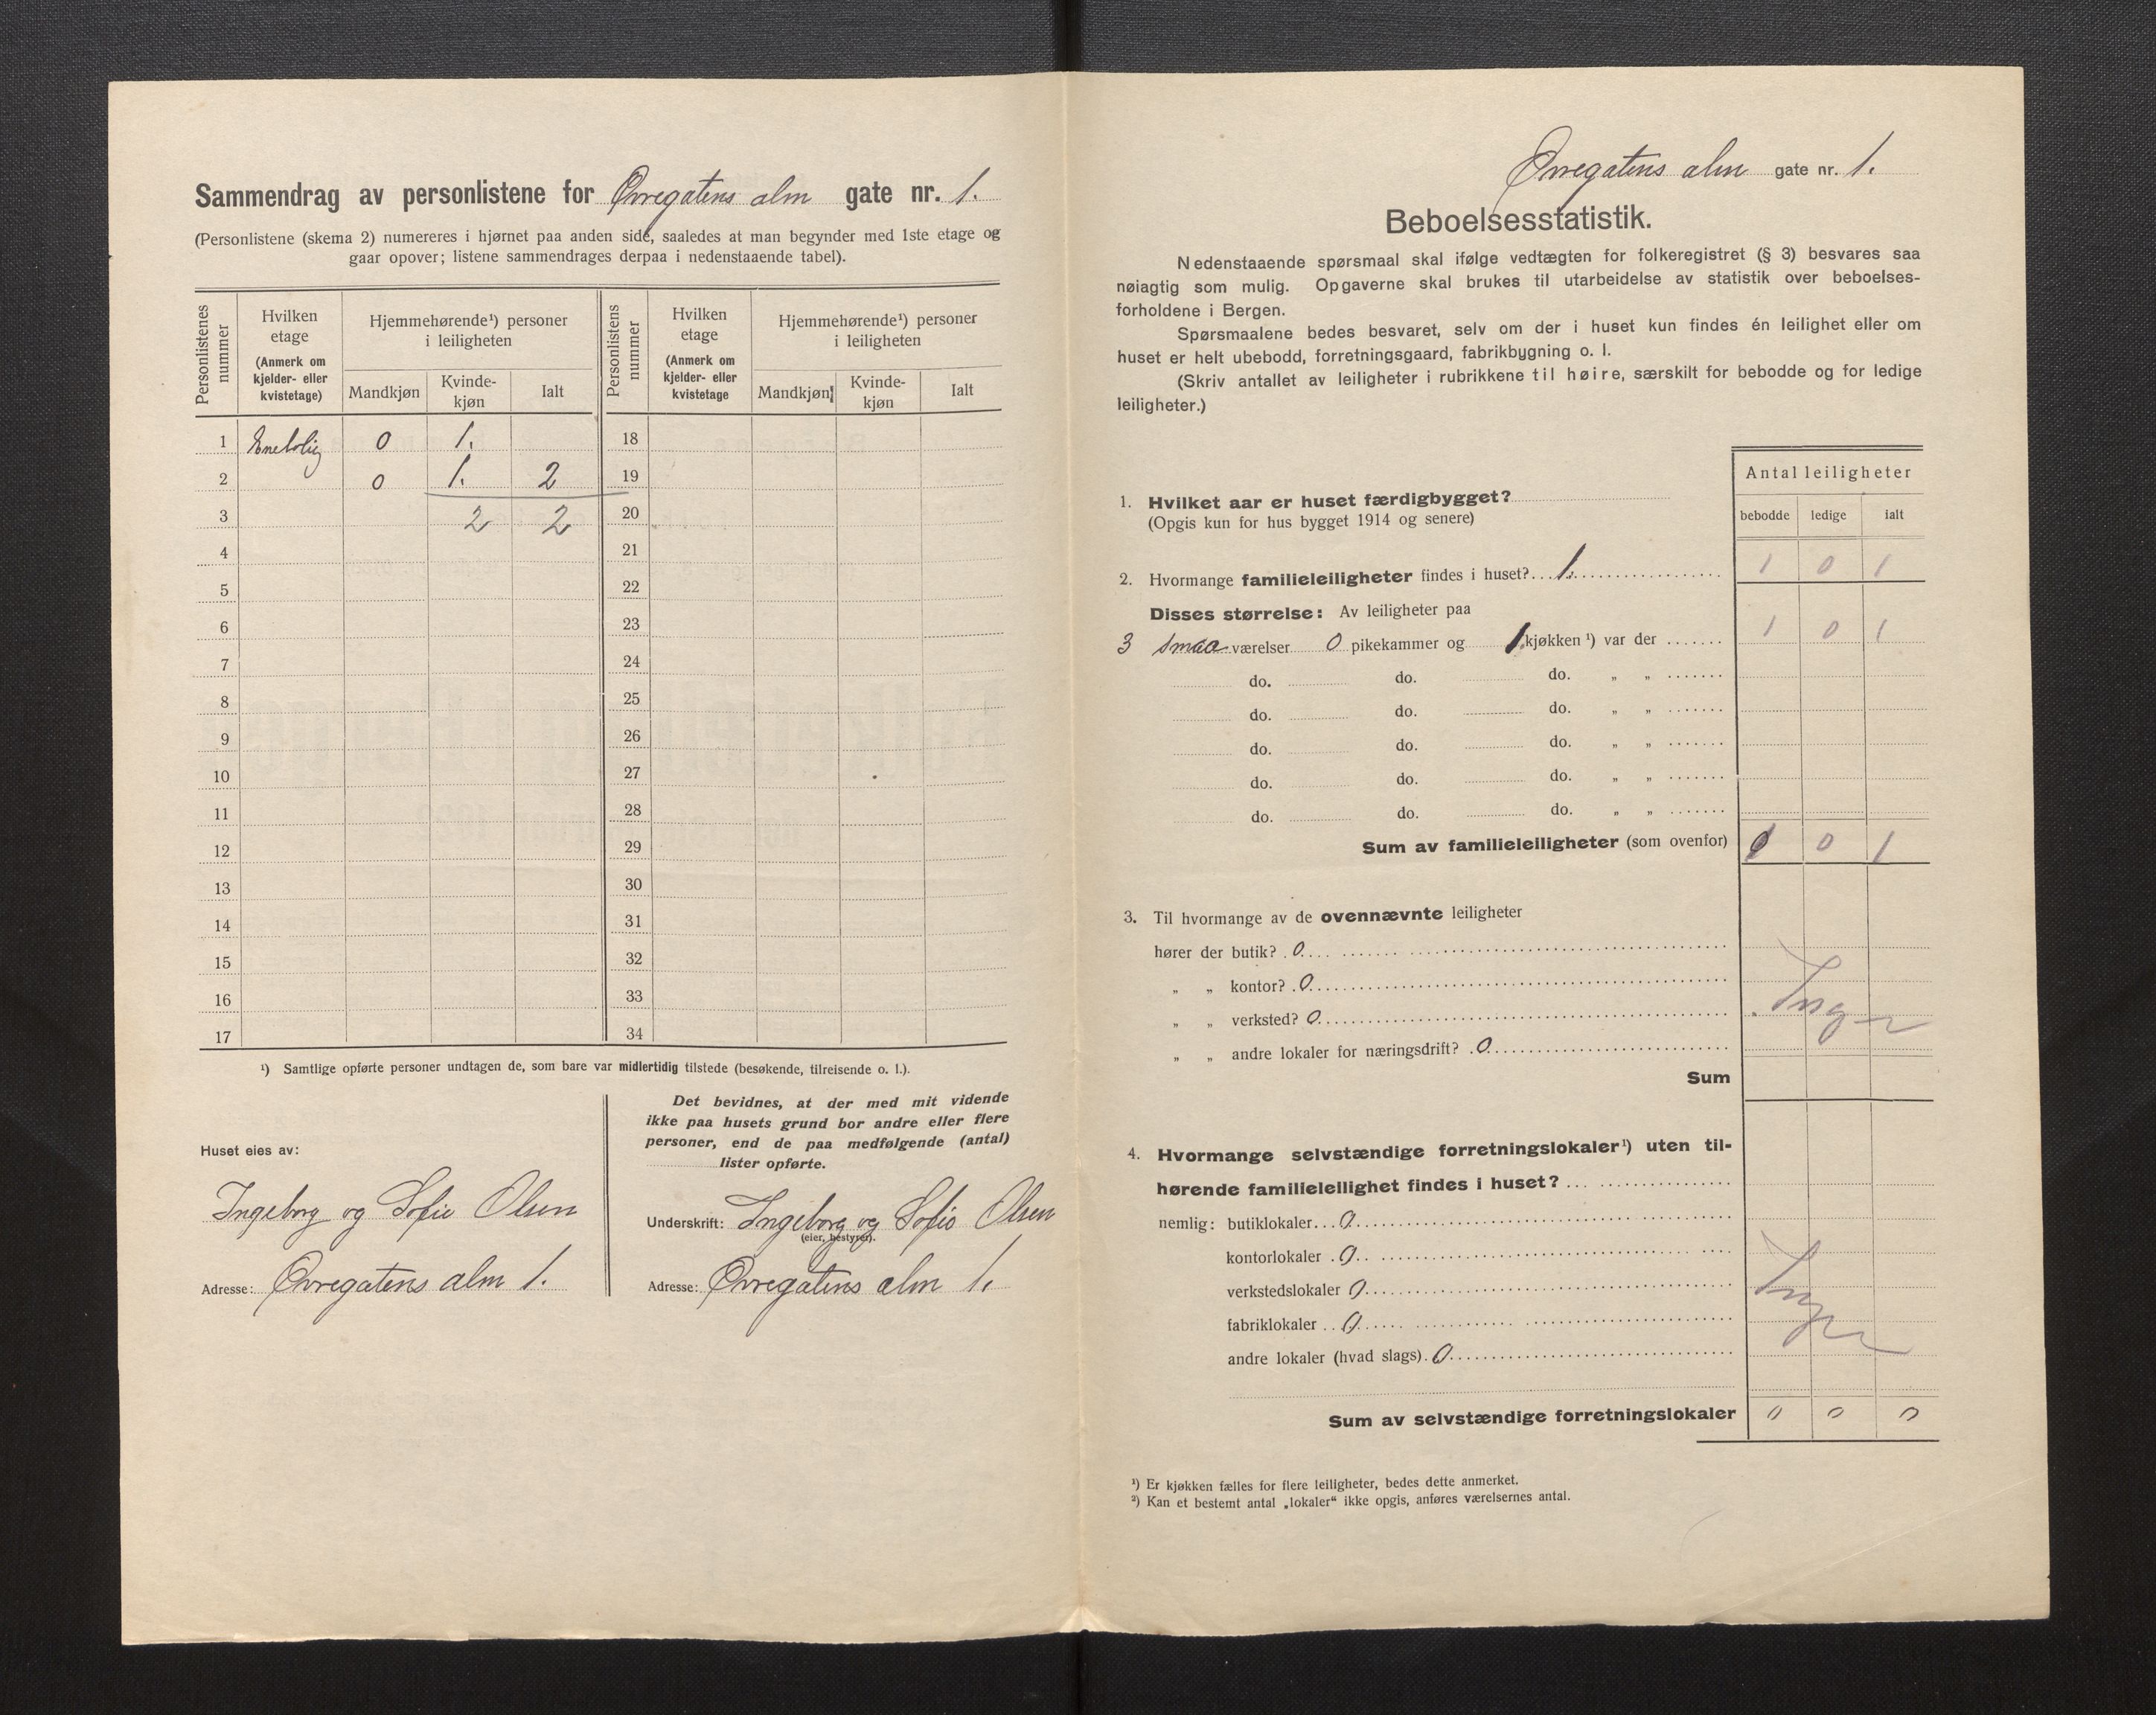 Sammendrag av personlistene for Øvregatens alm gate nr. 1.
(Personlistene (skema 2) numereres i hjørnet paa anden side, saaledes at man begynder med 1ste etage og
gaar opover; listene sammendrages derpaa i nedenstaaende tabel).
Personlistenes nummer
Hvilken etage (Anmerk om kjelder- eller kvistetage)
Hjemmehørende¹) personer i leiligheten
Mandkjøn Kvinde-kjøn Ialt
Personlistens nummer
Hvilken etage (Anmerk om kjelder- eller kvistetage
Hjemmehørende¹) personer i leiligheten
Mandkjøn Kvinde-kjøn Ialt
1 Enebolig 0 1. 18
2 0 1. 2 19
3 2 2 20
4 21
5 22
6 23
7 24
8 25
9 26
10 27
11 28
12 29
13 30
14 31
15 32
16 33
17 34
¹) Samtlige opførte personer undtagen de, som bare var midlertidig tilstede (besøkende, tilreisende o. l.).
Huset eies av:
Ingeborg og Sofie Olsen
Adresse: Øvregatens alm 1.
Det bevidnes, at der med mit vidende
ikke paa husets grund bor andre eller flere
personer, end de paa medfølgende (antal)
lister opførte.
Underskrift: Ingeborg og Sofie Olsen
(eier, bestyrer).
Adresse: Øvregatens alm 1.
Øvregatens alm gate nr. 1.
Beboelsesstatistik.
Nedenstaaende spørsmaal skal ifølge vedtægten for folkeregistret (§ 3) besvares saa
nøiagtig som mulig. Opgaverne skal brukes til utarbeidelse av statistik over beboelses-
forholdene i Bergen.
Spørsmaalene bedes besvaret, selv om der i huset kun findes én leilighet eller om
huset er helt ubebodd, forretningsgaard, fabrikbygning o. l.
(Skriv antallet av leiligheter i rubrikkene til høire, særskilt for bebodde og for ledige
leiligheter.)
Antal leiligheter
bebodde ledige ialt
1. Hvilket aar er huset færdigbygget?
(Opgis kun for hus bygget 1914 og senere)
2. Hvormange familieleiligheter findes i huset? 1. 1 0 1
Disses størrelse: Av leiligheter paa
3 smaa værelser 0 pikekammer og 1 kjøkken ¹) var der 1 0 1
do. do. do. „ „
do. do. do. „ „
do. do. do. „ „
do. do. do. „ „
do. do. do. „ „
Sum av familieleiligheter (som ovenfor) 1 0 1
3. Til hvormange av de ovennævnte leiligheter
hører der butik? 0
„ „ kontor? 0
„ „ verksted? 0
„ „ andre lokaler for næringsdrift? 0
Ingen
Sum
4. Hvormange selvstændige forretningslokaler¹) uten til-
hørende familieleilighet findes i huset?
nemlig: butiklokaler 0
kontorlokaler 0
verkstedslokaler 0
fabriklokaler 0
andre lokaler (hvad slags) 0
Ingen
Sum av selvstændige forretningslokaler 0 0 0
¹) Er kjøkken fælles for flere leiligheter, bedes dette anmerket.
²) Kan et bestemt antal „lokaler“ ikke opgis, anføres værelsernes antal.